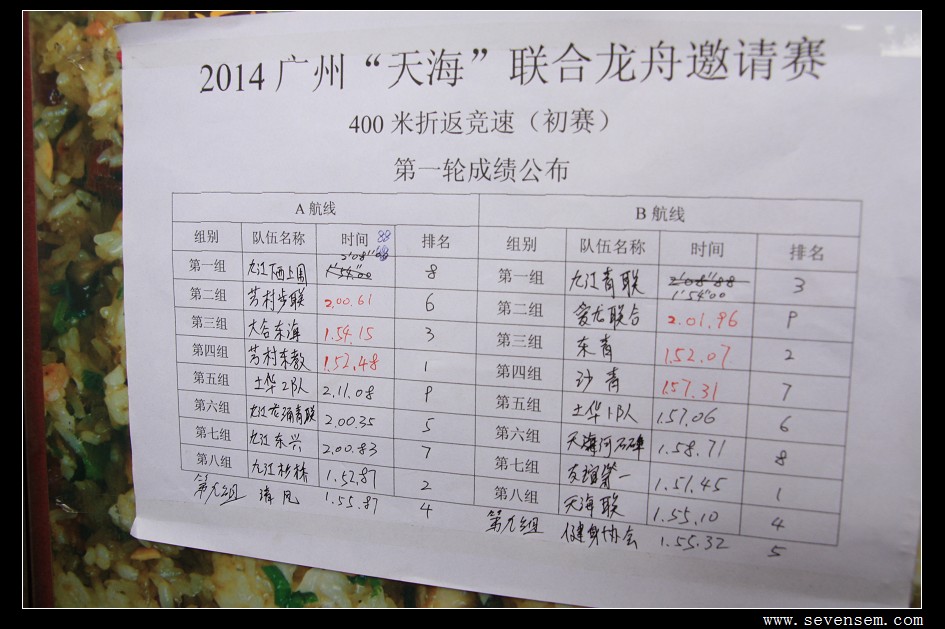 2014 广州“天海”联合龙舟邀请赛
400 米折返竞速（初赛）
第一轮成绩公布
A 航线 B 航线
组别 队伍名称 时间 排名 组别 队伍名称 时间 排名
第一组 九江下西上围 2'08"88 8 第一组 九江青联 1'54"00 3
第二组 芳村步联 2.00.61 6 第二组 爱龙联合 2.01.96 9
第三组 大合东海 1.54.15 3 第三组 东青 1.52.07 2
第四组 芳村东教 1.52.48 1 第四组 沙青 1.57.31 7
第五组 土华2队 2.11.08 9 第五组 土华1队 1.57.06 6
第六组 九江龙涌青联 2.00.35 5 第六组 天海河石碑 1.58.71 8
第七组 九江东兴 2.00.83 7 第七组 友谊第一 1.51.45 1
第八组 九江杉桥 1.52.87 2 第八组 天海联 1.55.10 4
第九组 清风 1.55.87 4 第九组 健身协会 1.55.32 5
www.sevensem.com